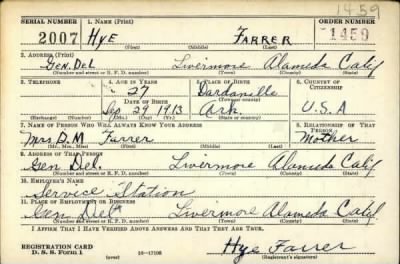 1459
SERIAL NUMBER 1. NAME (Print) ORDER NUMBER
2007 Hye Farrer 1459
(First) (Middle) (Last)
2. ADDRESS (Print)
Gen. Del Livermore Alameda Calif
(Number and street or R. F. D. number) (Town) (County) (State)
3. TELEPHONE 4. AGE IN YEARS 5. PLACE OF BIRTH 6. COUNTRY OF CITIZENSHIP
27 Dardanille
DATE OF BIRTH (Town or county)
Sep 29 1913 Ark. U.S.A
(Exchange) (Number) (Mo.) (Day) (Yr.) (State or country)
7. NAME OF PERSON WHO WILL ALWAYS KNOW YOUR ADDRESS 8. RELATIONSHIP OF THAT PERSON
Mrs D.M Farrer Mother
(Mr., Mrs., Miss) (First) (Middle) (Last)
9. ADDRESS OF THAT PERSON
Gen Del. Livermore Alameda Calif
(Number and street or R. F. D. number) (Town) (County) (State)
10. EMPLOYER'S NAME
Service Station
11. PLACE OF EMPLOYMENT OR BUSINESS
Gen Del Livermore Alameda Calif
(Number and street or R. F. D. number) (Town) (County) (State)
I AFFIRM THAT I HAVE VERIFIED ABOVE ANSWERS AND THAT THEY ARE TRUE.
REGISTRATION CARD
D. S. S. Form 1 (over) 16—17105 Hye Farrer
(Registrant's signature)